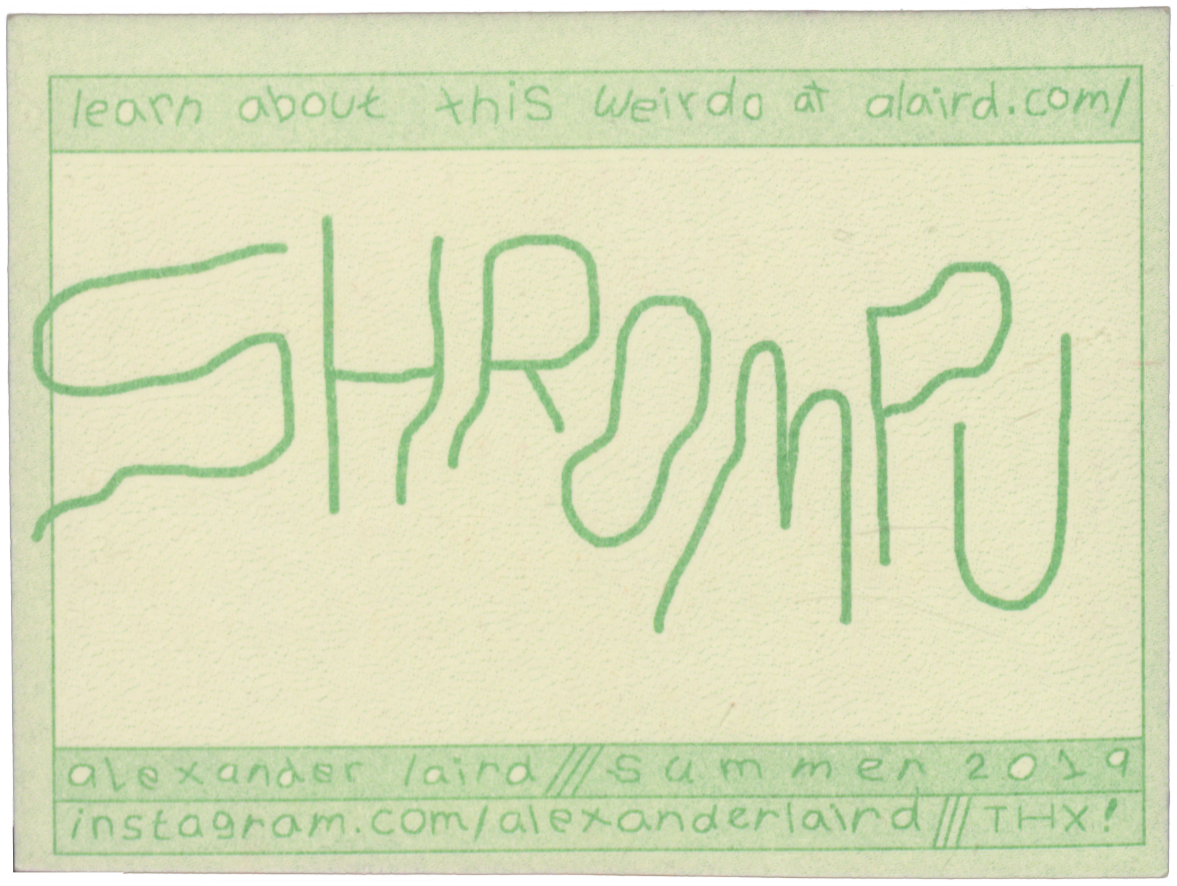 learn about this weirdo at alaird.com/
SHROMPU
alexander laird///Summer 2019
instagram.com/alexanderlaird///THX!